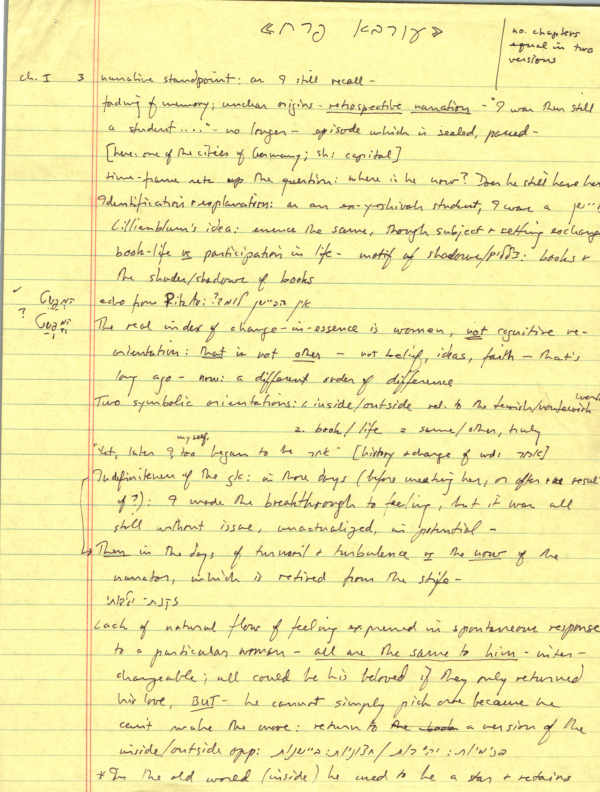 «עורבא פרח»
no. chapters
equal in two
versions
ch. I 3 narrative standpoint: as I still recall -
fading of memory; unclear origins - retrospective narration - "I was then still
a student ...." - no longer - episode which is sealed, passed -
[here: one of the cities of Germany; sh: capital]
time-frame sets up the question: where is he now? Does he still have her
Identification & explanation: as an ex-yeshivah student, I was a ביישן
Lillienblum's idea: essence the same, though subject & setting exchanged
book-life vs participation in life - motif of shadows/צללים: books &
the shades/shadows of books
✓ echo from אין הביישן למד?:
?
The real index of change-in-essence is women, not cognitive re-
orientation: that is not other - not belief, ideas, faith - that's
long ago - now: a different order of difference
Two symbolic orientations: inside/outside rel. to the Jewish/nonJewish world
2. book/life = same/other, truly
"Yet, later I too myself began to be אחר" [history & change of wd: אחר]
Indefiniteness of the: in those days (before meeting her, or after as result
of?): I made the breakthrough to feeling, but it was all
still without issue, unactualized, in potential -
Then in the days of turmoil & turbulence vs the now of the
narrator, which is retired from the strife -
Lack of natural flow of feeling expressed in spontaneous response
to a particular woman - all are the same to him - inter-
changeable; all could be his beloved if they only returned
his love, BUT - he cannot simply pick one because he
can't make the move: return to a version of the
inside/outside opp: ביישנות :חצוניות/ :פנימיות
* In the old world (inside) he used to be a star & retains